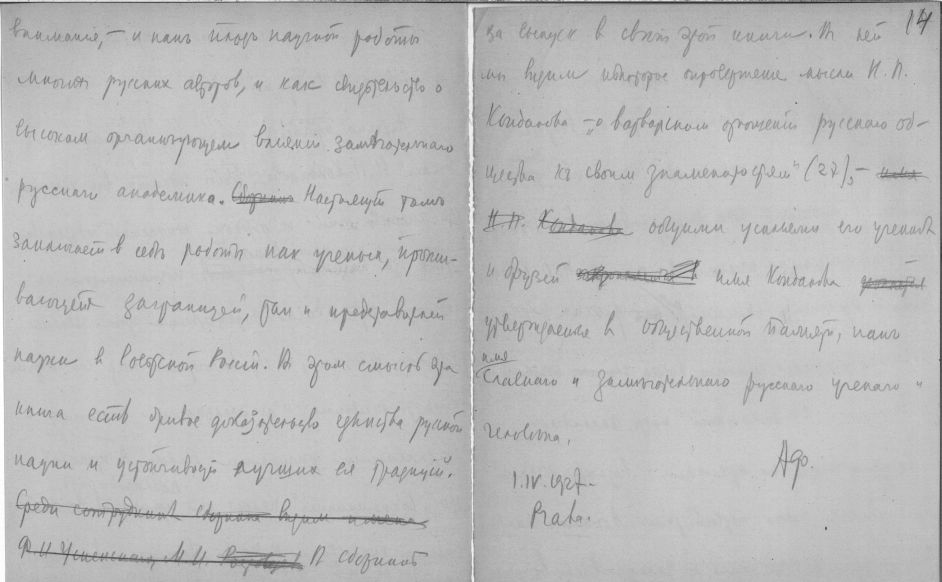 вниманія, — и какъ плодъ научной работы
многихъ русских авторов, и как свидѣтельство о
высоком организующем вліяніи замѣчательнаго
русскаго академика. Сборникъ Настоящій томъ
заключает в себѣ работы как ученых, прожи-
вающихъ заграницей, так и представителей
науки в Совѣтской Россіи. В этом смыслѣ эта
книга есть живое доказательство единства русской
науки и устойчивости лучших ея традицій.
Среди сотрудников сборника видим имена
Ф. И. Успенскаго, М. И. Ростовцева В сборникѣ
14
за выпуск в свѣт этой книги. В ней
мы видим нѣкоторое опроверженіе мысли Н. П.
Кондакова — „о варварском отношеніи русскаго об-
щества къ своим знаменитостям" (27), — имя
Н. П. Кондакова общими усиліями его учеников
и друзей имя Кондакова
утверждается в общественной памяти, какъ
имя
славнаго и замѣчательнаго русскаго ученаго и
человѣка.
Аф.
1.IV.1927.
Praha.